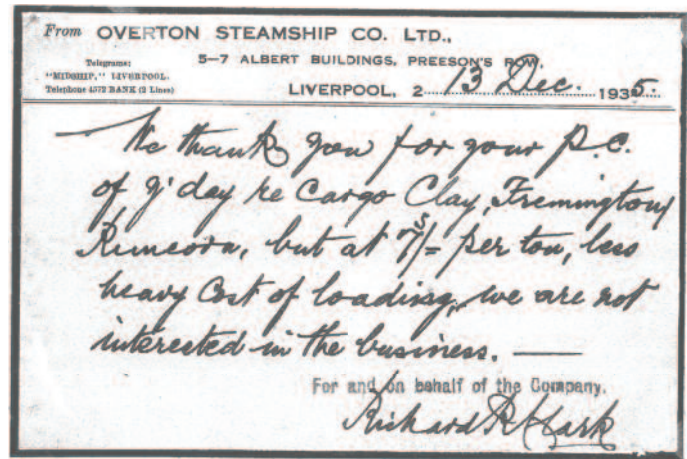 From OVERTON STEAMSHIP CO. LTD.,
5–7 ALBERT BUILDINGS, PREESON'S ROW,
Telegrams:
"MIDSHIP," LIVERPOOL.
Telephone 4572 BANK (2 Lines)
LIVERPOOL, 2 13 Dec. 1935.
We thank you for your P.C.
of y'day re Cargo Clay, Fremington/
Runcorn, but at 5/= per ton, less
heavy cost of loading, we are not
interested in the business. —
For and on behalf of the Company.
Richard R Clark